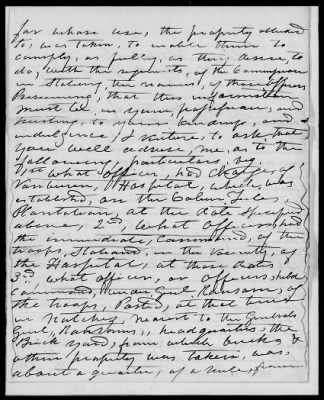 for whose use, the property alluded
to, was taken, to enable them to
comply, as fully, as they desire, to
do, with the requests, of the Commissioners
in stating, the names, of those officers
Presuming, that this information
must be in your possession, and
trusting, to your kindness, and
indulgence, I venture, to ask that
you will advise, me, as to the
following, particulars, viz.
1st what Officer, had Charge, of
Vanburen, Hospital which, was
established, on the
Plantation, at the date Specified
above, 2nd, What Officer, had
the immediate, Command, of the
troops, Stationed, in the vicinity, of
the Hospital, at those dates,
3rd, what officer, or officers, held
Command, under Genl Ransom, of
the troops, Posted, at that time
in Natchez, nearest to the Generals
Genl, Ransoms, headquarters, the
Brick yard, from which bricks &
other property was taken, was
about a quarter, of a mile, from